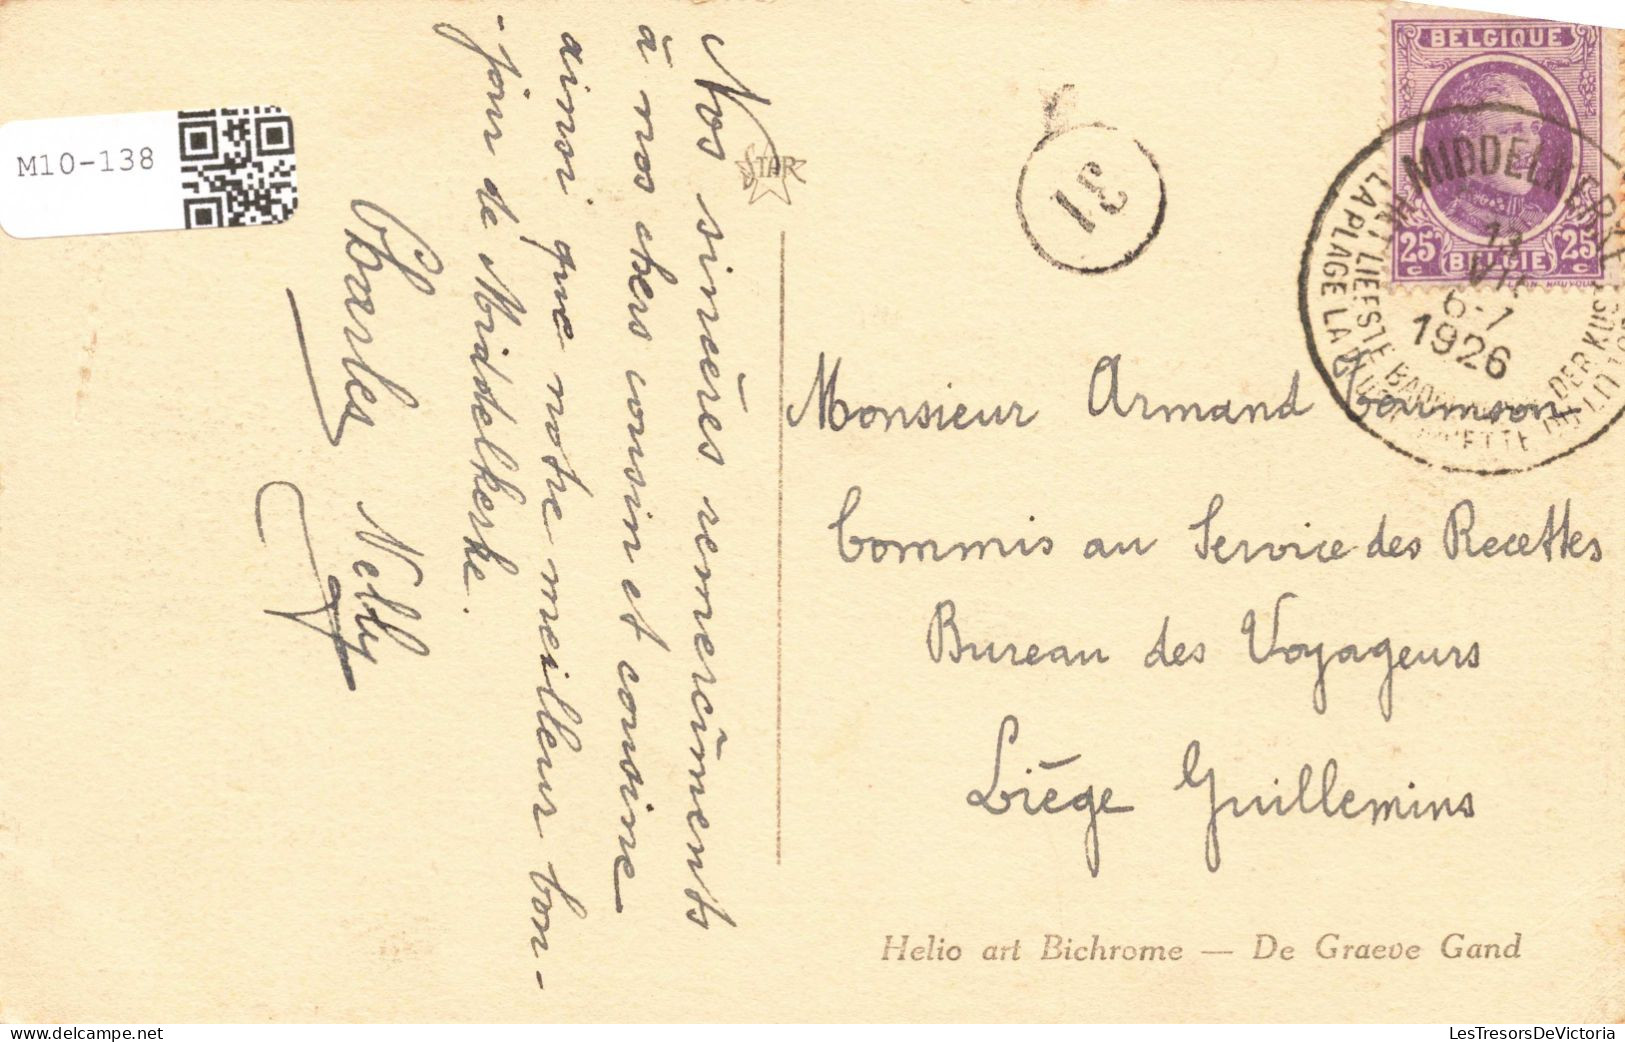 M10-138
Nos sincères remerciments
à nos chers cousin et cousine
ainsi que notre meilleur bon-
-jour de Middelkerke.
Charles Nelly
STAR
31
BELGIQUE
25c 25c
BELGIË
MIDDELKERKE
13
VII
6-7
1926
LA PLAGE LA PLUS COQUETTE DU LITTORAL
Monsieur Armand
Commis au Service des Recettes
Bureau des Voyageurs
Liége Guillemins
Helio art Bichrome — De Graeve Gand
LesTresorsDeVictoria